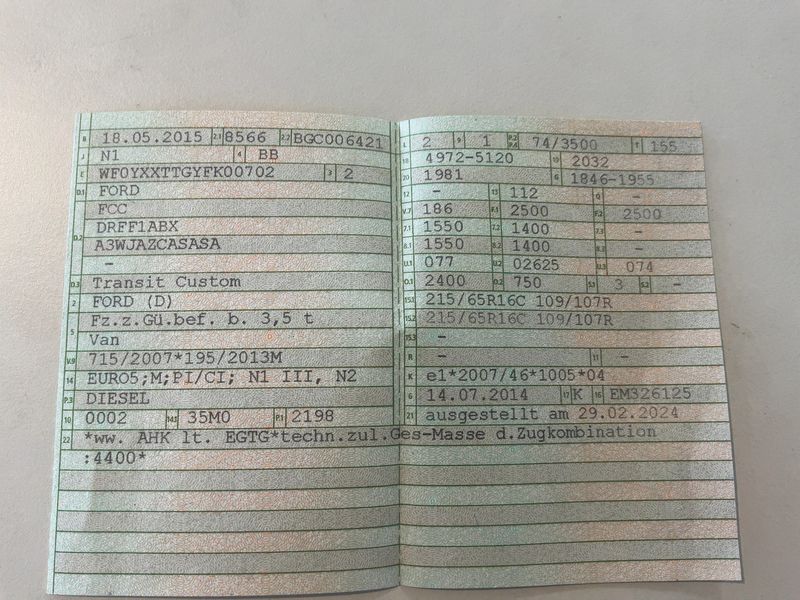 B 18.05.2015 2.1 8566 2.2 BGC006421
J N1 4 BB
E WF0YXXTTGYFK00702 3 2
D.1 FORD
FCC
D.2 DRFF1ABX
A3WJAZCASASA
-
D.3 Transit Custom
2 FORD (D)
5 Fz.z.Gü.bef. b. 3,5 t
Van
V.9 715/2007*195/2013M
14 EURO5;M;PI/CI; N1 III, N2
P.3 DIESEL
10 0002 14.1 35M0 P.1 2198
L 2 9 1 P.2 P.4 74/3500 T 155
18 4972-5120 19 2032
20 1981 G 1846-1955
12 - 13 112 Q -
V.7 186 F.1 2500 F.2 2500
7.1 1550 7.2 1400 7.3 -
8.1 1550 8.2 1400 8.3 -
U.1 077 U.2 02625 U.3 074
O.1 2400 O.2 750 S.1 3 S.2 -
15.1 215/65R16C 109/107R
15.2 215/65R16C 109/107R
15.3 -
R - 11 -
K e1*2007/46*1005*04
6 14.07.2014 17 K 16 EM326125
21 ausgestellt am 29.02.2024
22 *ww. AHK lt. EGTG*techn.zul.Ges-Masse d.Zugkombination
:4400*